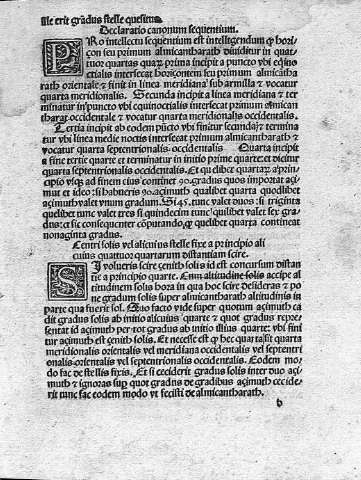 ille erit gradus stelle quesitus.
Declaratio canonum sequentium.
PRo intellectu sequentium est intelligendum ꝙ hori
çon seu primum almicantharath diuiditur in qua
tuor quartas quarũ prima incipit a puncto vbi eq̃no
ctialis intersecat horiçontem seu primum almicãtha
rath orientale ⁊ finit in linea meridiana sub armilla ⁊ vocatur
quarta meridionalis. Secunda incipit a linea meridiana ⁊ ter
minatur in puncto vbi equinoctialis intersecat primum almican
tharat occidentale ⁊ vocatur quarta meridionalis occidentalis.
Tertia incipit ab eodem pũcto vbi finitur secunda ⁊ termina
tur vbi linea medie noctis intersecat primum almicantharath ⁊
vocatur quarta septentrionalis occidentalis Quarta incipit
a fine tertie quarte et terminatur in initio prime quarte et dicitur
quarta septentrionalis occidentalis. Et qđ libet quartarũ a prin
cipio vsq3 ad finem eius continet 90. gradus quos importat açi
mut et ideo si habueris 90. açimuth qualibet quarta quodlibet
açimuth valet vnum gradum. Si 45. tunc valet duos: si triginta
quelibet tunc valet tres si quindecim tunc quilibet valet sex gra
dus: et sic consequenter cõputando, ꝙ quelibet quarta contineat
nonaginta gradus.
Centri solis vel alicuius stelle fixe a principio ali
cuius quatuor quartarum distantiam scire.
SI volueris scire çenith solis id est concursum distan
tie a principio quarte. Cum altitudine solis accipe al
titudinem solis hora in qua hoc scire desideras ⁊ po
ne gradum solis super almicantharath altitudinis in
parte qua fuerit sol. Quo facto vide super quotum açimuth ca
dit gradus solis ab initio alicuius quarte ⁊ quot gradus repre
sentat id açimuth per tot gradus ab initio illius quarte vbi fini
tur açimuth est çenith solis. Et necesse est ꝙ hec quarta sit quarta
meridionalis orientalis vel meridiana occidentalis vel septentri
onalis orientalis vel septentrionalis occidentalis. Eodem mo
do fac de stellis fixis. Et si ceciderit gradus solis inter duo açi
muth ⁊ ignoras sup̱ quot gradus de gradibus açimuth cecide
rit tunc fac eodem modo vt fecisti de almicantharath.
b